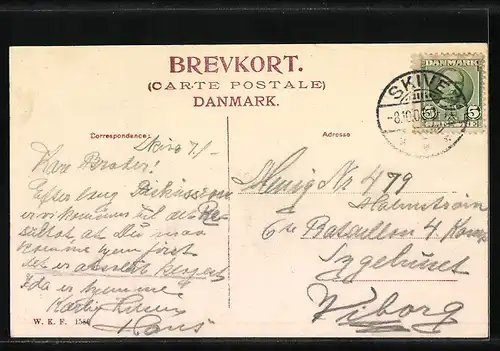 BREVKORT.
(CARTE POSTALE)
DANMARK.
DANMARK
SKIVE
5 5
-8.10.0
Correspondence:
Adresse
Skive 7/
Kære Broder!
Efter lang Diskussion
er vi kommen til det Re
sultat at Du maa
komme hjem først
det er absolut
Ida er hjemme
Kærlig Hilsen
Hans
Menig Nr 479
6te Bataillon 4. Komp
Sygehuset
Viborg
W. K. F. 15